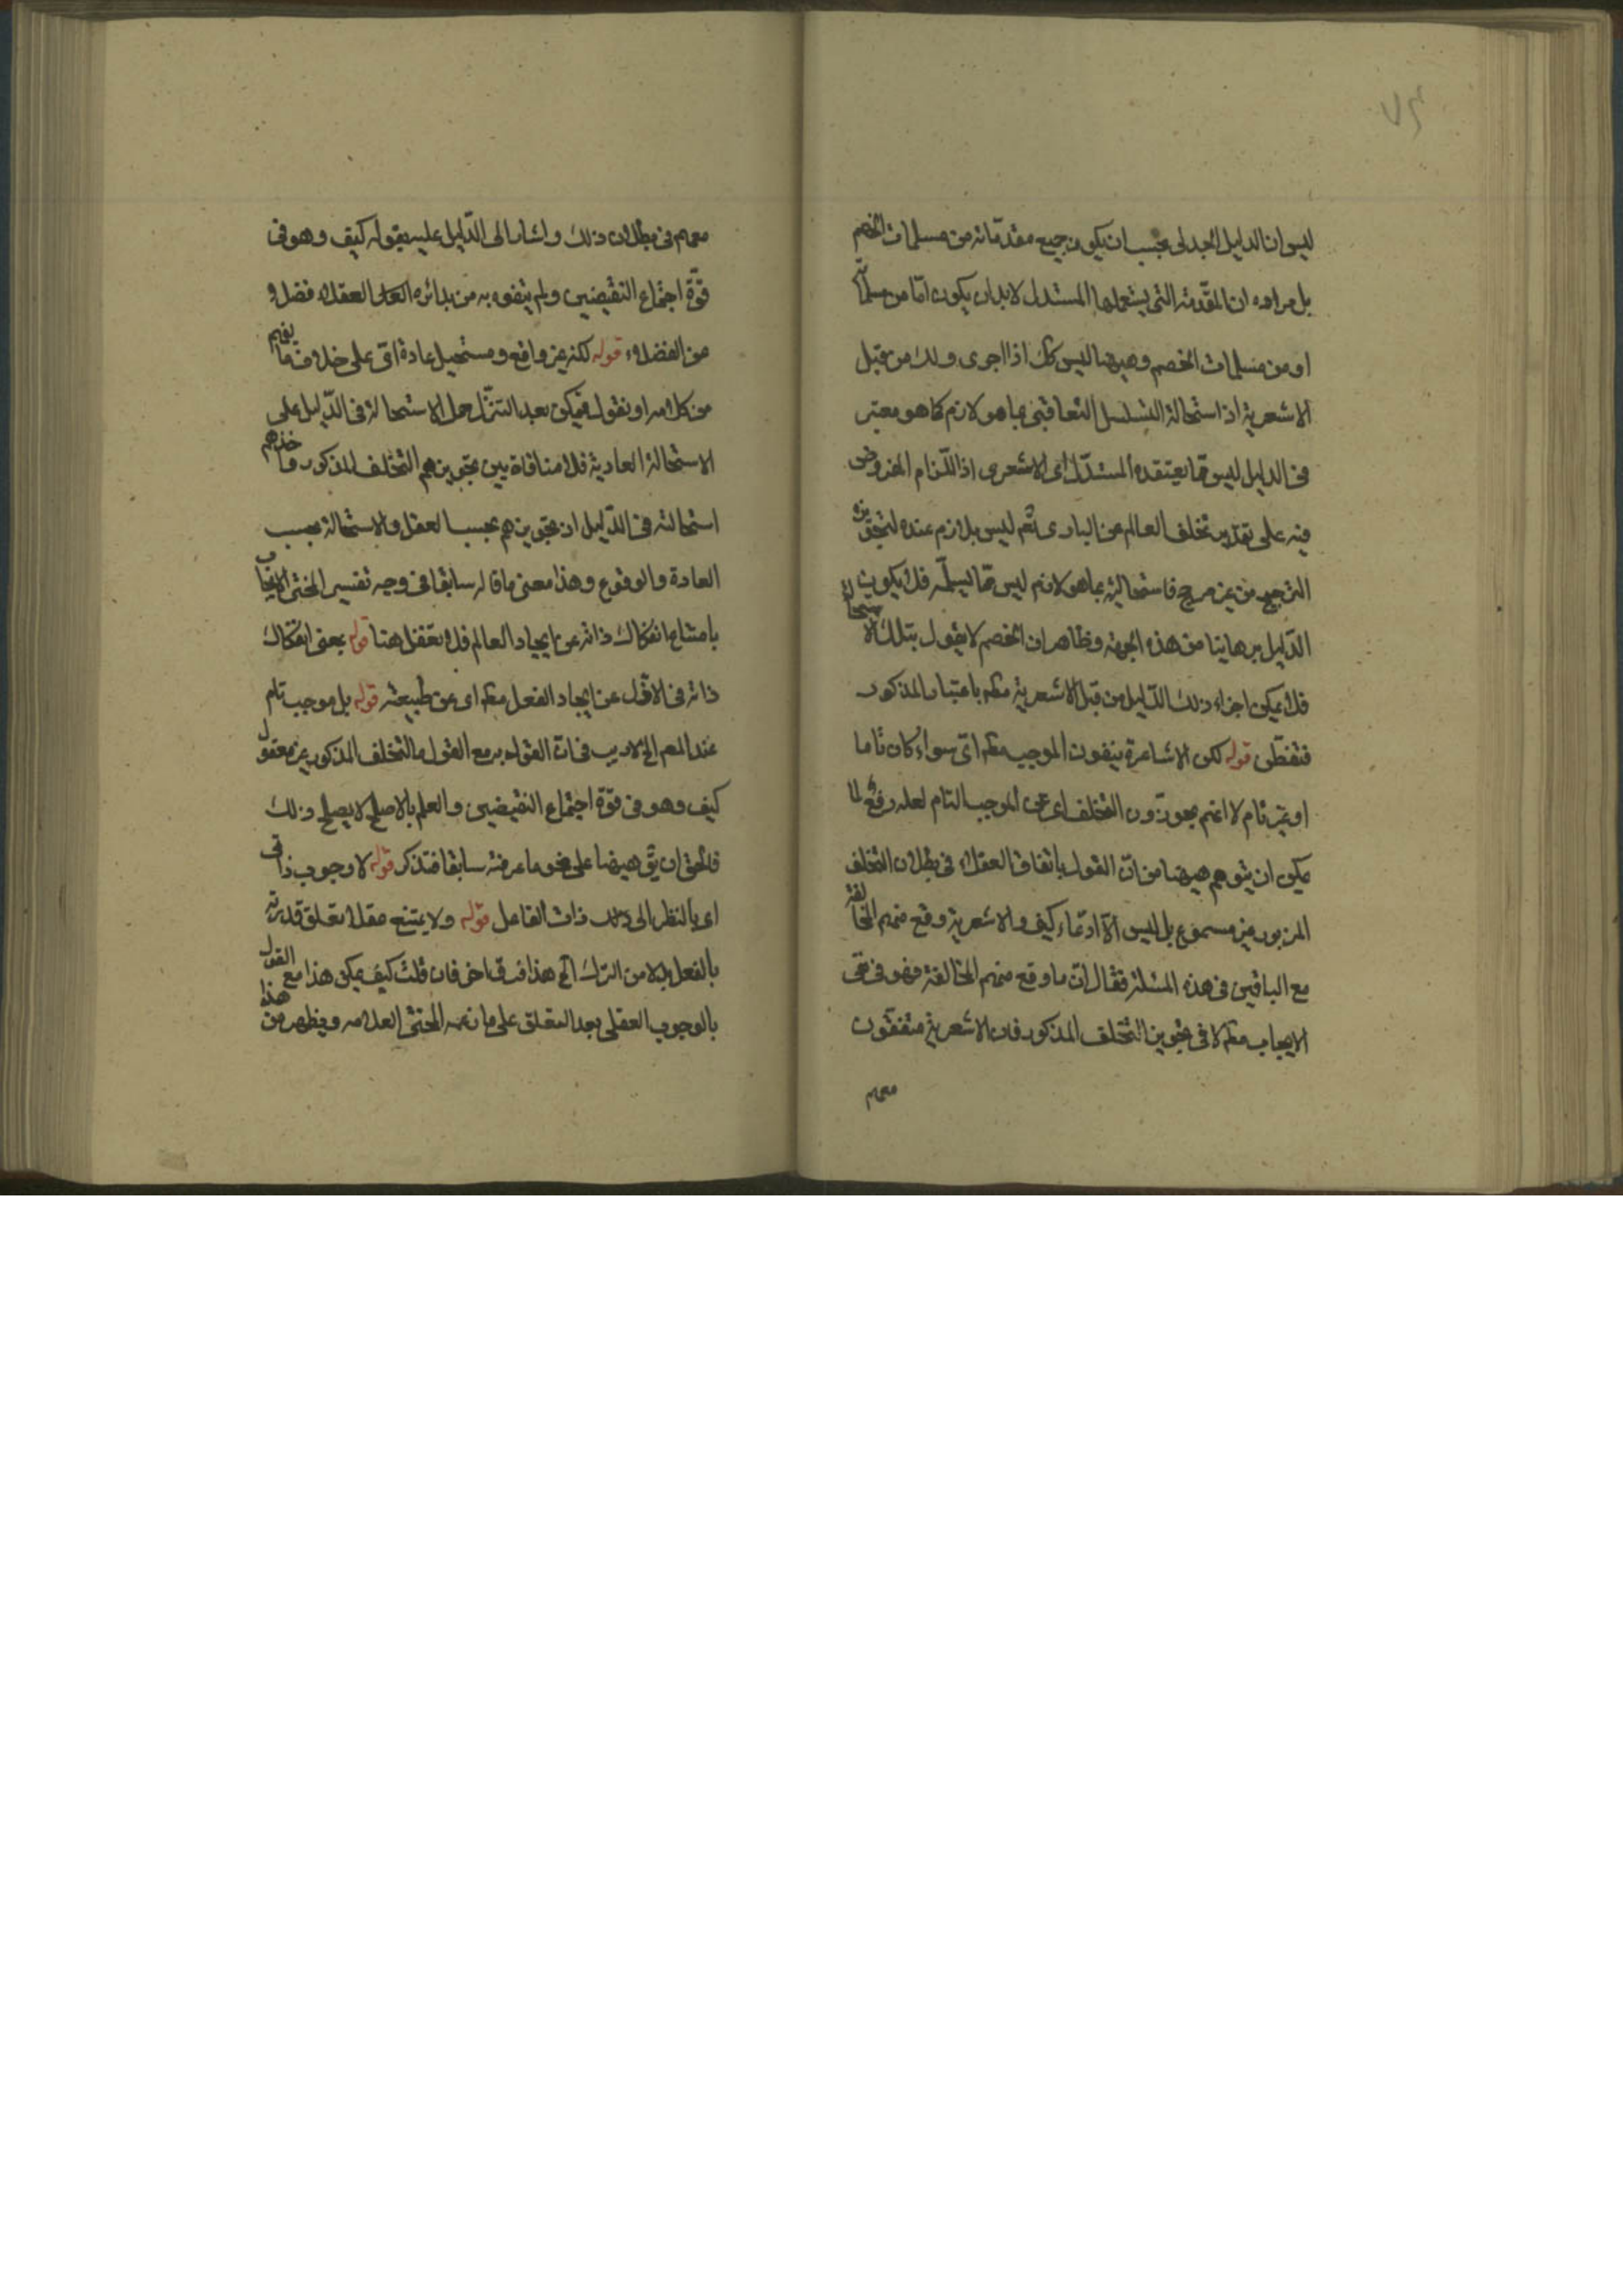 ليس ان الدليل الجدلى يجب ان يكون جميع مقدماته من مسلمات الخصم
بل مراده ان المقدمة التى يستعملها المستدل لابد ان يكون امّا من مسلماته
او من مسلمات الخصم وهيهنا ليس كك اذا اجرى من قبل
الاشعرية اذ استحالة التسلسل التعاقبى بما هو لازم كما هو معتبر
فى الدليل ليس مما يعتقده المستدل اى الاشعرى اذ اللزام المفروض
فيه على تقدير تخلف العالم عن البارى تعم ليس بلازم عنده لتجويزه
الترجيح من غير مرجح فاستحاليته بما هو لازم ليس مما يسلمه فلا يكون
الدليل برهانيا من هذه الجهة وظاهر ان الخصم لا يقول بتلك الاستحالة
فلا يمكن اجراء ذلك الدليل من قبل الاشعرية مطم باعتبار المذكور
فتفطن قوله لكن الاشاعرة ينفون الموجب مطم اى سواء كان تاما
او غير تام لا انهم يجوزون التخلف اى عن الموجب التام لعله رفع لما
يمكن ان يتوهم هيهنا من ان القول باتفاق العقلاء فى بطلان التخلف
المزبور غير مسموع بل ليس الا ادعاء كيف والاشعرية وقع منهم المخالفة
مع الباقين فى هذه المسئلة فقال ان ما وقع منهم المخالفة فهو فى نفى
الايجاب مطم لا فى تجويز التخلف المذكور فان الاشعرية متفقون
معهم
معهم فى بطلان ذلك واشار الى الدليل عليه بقوله كيف وهو فى
قوة اجتماع النقيضين ولم يتفوه به من العقلاء فضلا
من الفضلاء قوله لكنه غير واقع ومستحيل عادة اى على خلاف ما يفهم
من كلامه او نقول فيمكن بعد التنزل حمل الاستحالة فى الدليل على
الاستحالة العادية فلا منافاة بين تجويزهم التخلف المذكور و
استحالته فى الدليل اذ تجويزهم بحسب العقل والاستحالة بحسب
العادة والوقوع وهذا معنى ما قاله سابقا فى وجه تفسير المحشى الايجاب
بامتناع انفكاك ذاته عن ايجاد العالم فلا تغفل هنا قوله بمعنى انفكاك
ذاته فى الازل عن ايجاد الفعل مطم اى عن طبيعته قوله بل موجب تام
عند المص الخ لا ريب فى ان القول به مع القول بالتخلف المذكور غير معقول
كيف وهو فى قوة اجتماع النقيضين والعلم بالاصلح لا يصلح ذلك
فالحق ان يق هيهنا على نحو ما عرفته سابقا فتذكر قوله لا وجوب ذاتى
اى بالنظر الى ذات الفاعل قوله ولا يمتنع عقلا تعلق قدرته
بالفعل بدلا من الترك الخ هذا فان قلت كيف يمكن هذا مع القول
بالوجوب العقلى بعد التعلق على ما المحشى العلامه ويظهر من هذا